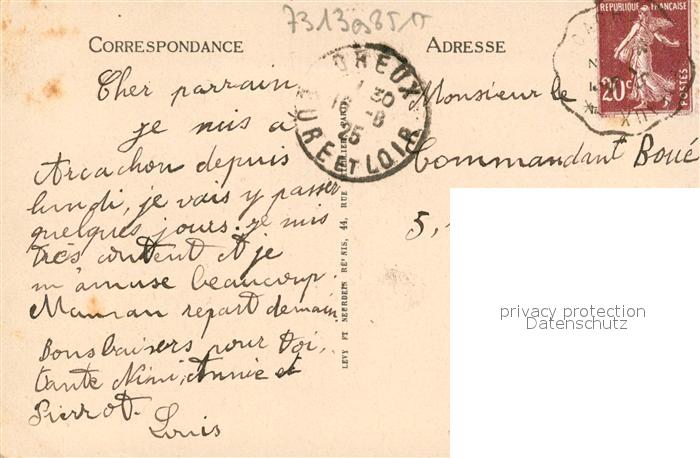 7313 85
CORRESPONDANCE
Cher parrain
je suis a
Arcachon depuis
lundi, je vais y passer
quelques jours. je suis
très content et je
m'amuse beaucoup.
Maman repart demain
Bons baisers pour toi,
tante Nini, Annie et
Pierrot.
Louis
DREUX
30
-8
25
EURE ET LOIR
LEVY ET NEURDEIN RÉUNIS, 44, RUE LETELLIER, PARIS
ADRESSE
Monsieur le
Commandant Boué
5,
RÉPUBLIQUE FRANÇAISE
20c
POSTES
privacy protection
Datenschutz